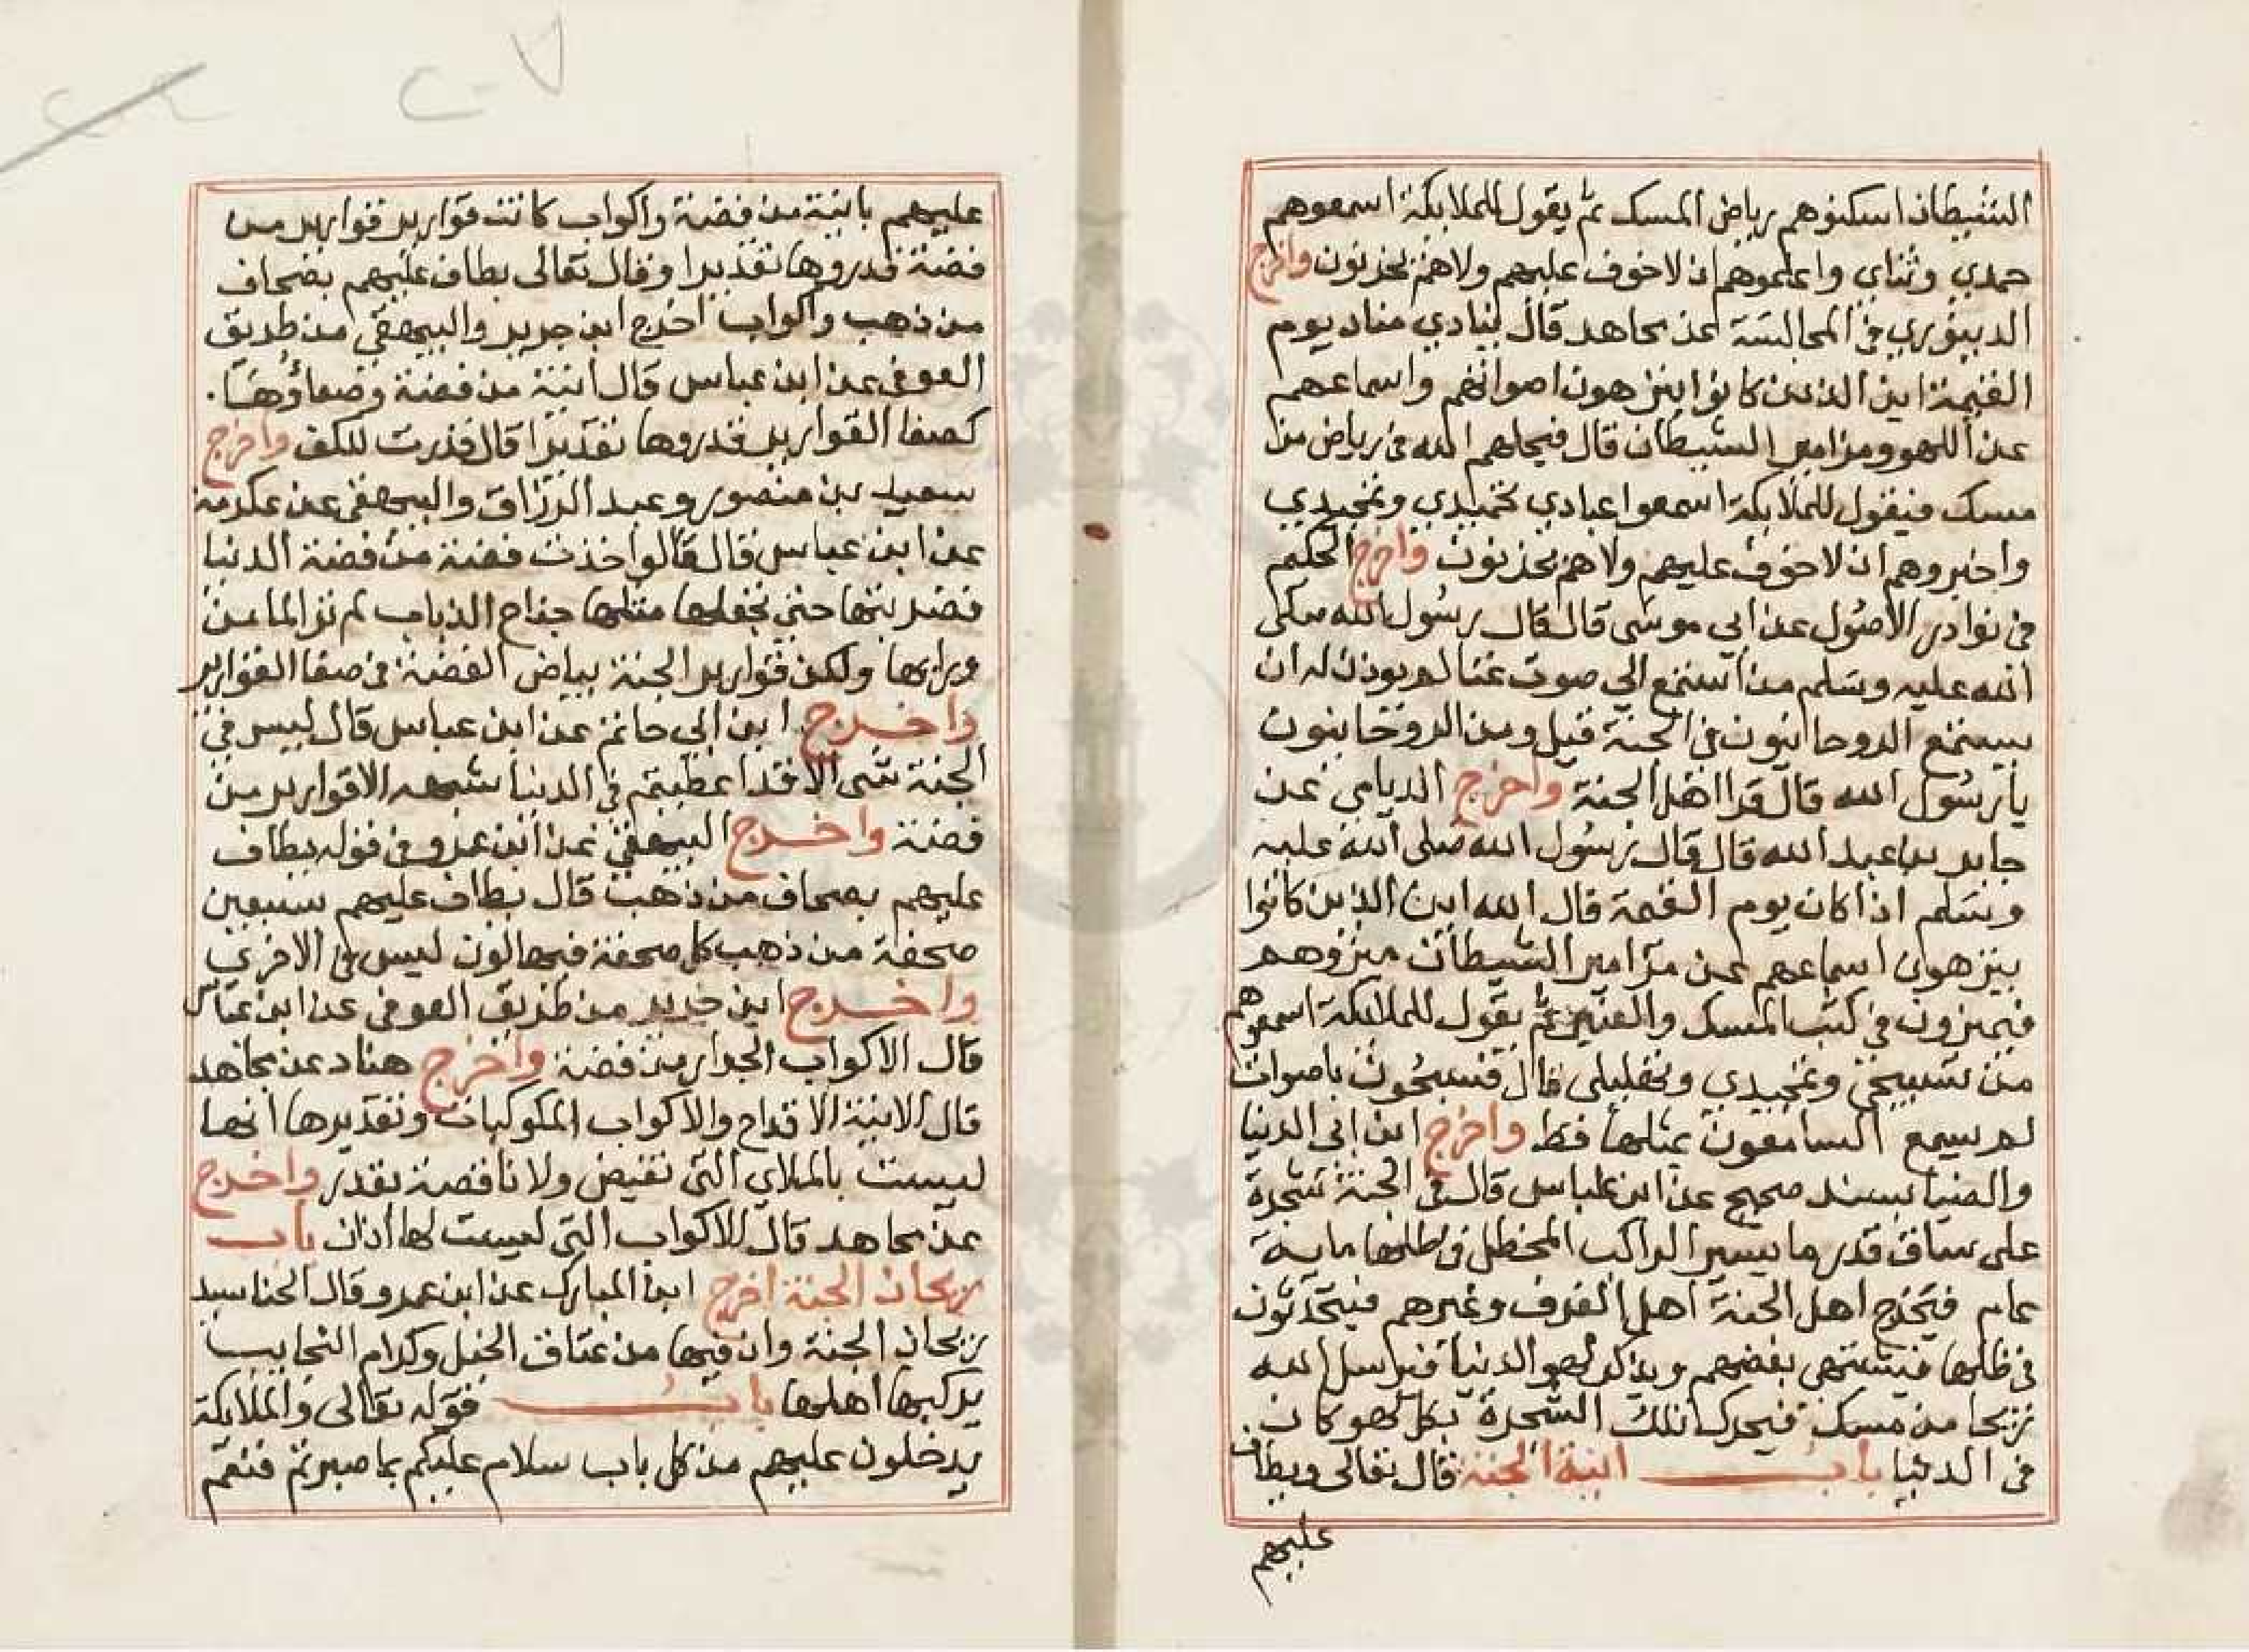 الشيطان اسكنوهم رياض المسك ثم يقول للملايكة اسمعوهم
حمدي وثناي واعلموهم ان لا خوف عليهم ولا هم يحزنون واخرج
الدينوري في المجالسة عن مجاهد قال ينادي مناد يوم
القيمة اين الذين كانوا ينزهون اصواتهم واسماعهم
عن اللهو ومزامير الشيطان قال فيحلهم الله في رياض من
مسك فيقول للملايكة اسمعوا عبادي تحميدي وتمجيدي
واخبروهم ان لا خوف عليهم ولا هم يحزنون واخرج الحكيم
في نوادر الاصول عن ابي موسى قال قال رسول الله صلى
الله عليه وسلم من استمع الي صوت غنا لم يوذن له ان
يستمع الروحانيون في الجنة قيل ومن الروحانيون
يا رسول الله قال قرا اهل الجنة واخرج الديلمي عن
جابر بن عبد الله قال قال رسول الله صلى الله عليه
وسلم اذا كان يوم القيمة قال الله اين الذين كانوا
ينزهون اسماعهم عن مزامير الشيطان ميزوهم
فيميزون في كتب المسك والعنبر ثم يقول للملايكة اسمعوهم
من تسبيحي وتمجيدي وتهليلي قال فيسبحون باصوات
لم يسمع السامعون بمثلها قط واخرج ابن ابي الدنيا
والضيا بسند صحيح عن ابن عباس قال في الجنة شجرة
على ساق قدر ما يسير الراكب في ظلها ماية
عام فيخرج اهل الجنة اهل الغرف وغيرهم فيتحدثون
في ظلها فيشتهي بعضهم ويذكر لهو الدنيا فيرسل الله
ريحا من مسك فيحرك تلك الشجرة بكل لهو كان
في الدنيا باب انية الجنة قال تعالى ويطاف
عليهم
عليهم بانية من فضة واكواب كانت قوارير قوارير من
فضة قدروها تقديرا وقال تعالى يطاف عليهم بصحاف
من ذهب واكواب اخرج ابن جرير والبيهقي من طريق
العوفي عن ابن عباس قال انية من فضة وصفاؤها
كصفا القوارير قدروها تقديرا قال قدرت للكف واخرج
سعيد بن منصور وعبد الرزاق والبيهقي عن عكرمة
عن ابن عباس قال قال لو اخذت فضة من فضة الدنيا
فضربتها حتى تجعلها مثلها جناح الذباب لم تر الما من
ورايها ولكن قوارير الجنة بياض الفضة في صفا القوارير
واخرج ابن ابي حاتم عن ابن عباس قال ليس في
الجنة شى الا قد اعطيتم في الدنيا شبهه الا قوارير من
فضة واخرج البيهقي عن ابن عمرو في قوله يطاف
عليهم بصحاف من ذهب قال يطاف عليهم سبعين
صحفة من ذهب كل صحفة فيها لون ليس في الاخري
واخرج ابن جرير من طريق العوفي عن ابن عباس
قال الاكواب الجرار من فضة واخرج هناد عن مجاهد
قال الانية الاقداح والاكواب المكوكبات وتقديرها انها
ليست بالملاي التي تفيض ولا ناقصة بقدر واخرج
عن مجاهد قال الاكواب التي ليست لها اذان باب
ريحان الجنة اخرج ابن المبارك عن ابن عمرو قال الحنا سيد
ريحان الجنة وان فيها من عتاق الخيل وكرام النجايب
يركبها اهلها باب قوله تعالى والملايكة
يدخلون عليهم من كل باب سلام عليكم بما صبرتم فنعم